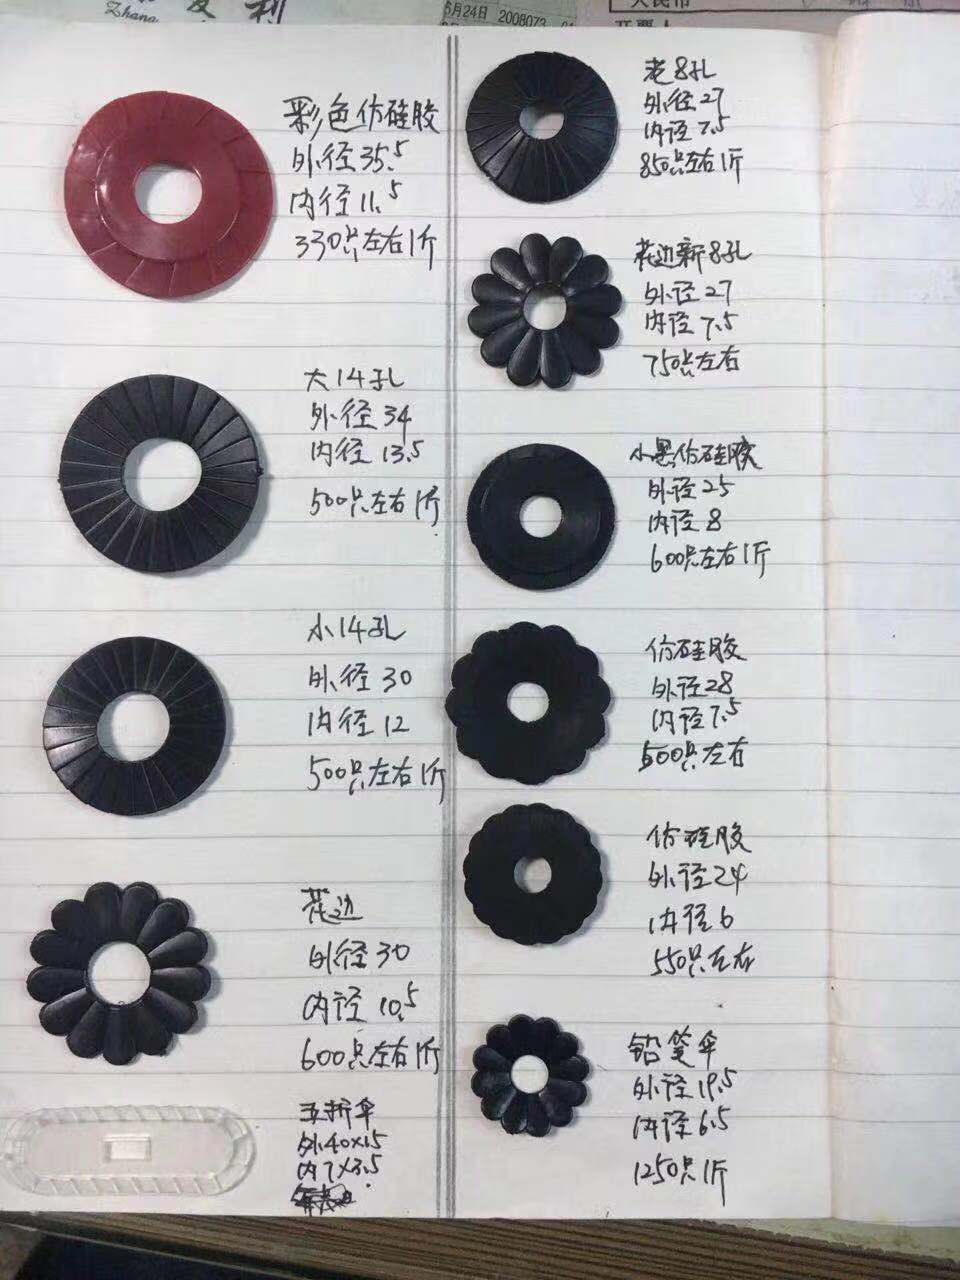 Zhang
6月24日 2008073
人民币
开票人
彩色仿硅胶
外径35.5
内径11.5
330只左右1斤
大14孔
外径34
内径13.5
500只左右1斤
小14孔
外径30
内径12
500只左右1斤
花边
外径30
内径10.5
600只左右1斤
五折伞
外40x15
内7x3.5
老8孔
外径27
内径7.5
850只左右1斤
花边新8孔
外径27
内径7.5
750只左右
小黑仿硅胶
外径25
内径8
600只左右1斤
仿硅胶
外径28
内径7.5
500只左右
仿硅胶
外径24
内径6
550只左右
铅笔伞
外径19.5
内径6.5
1250只1斤